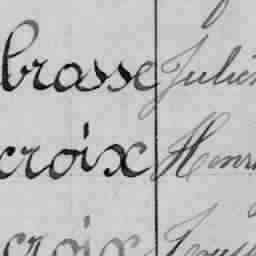 brasse Julien
croix Henri
croix